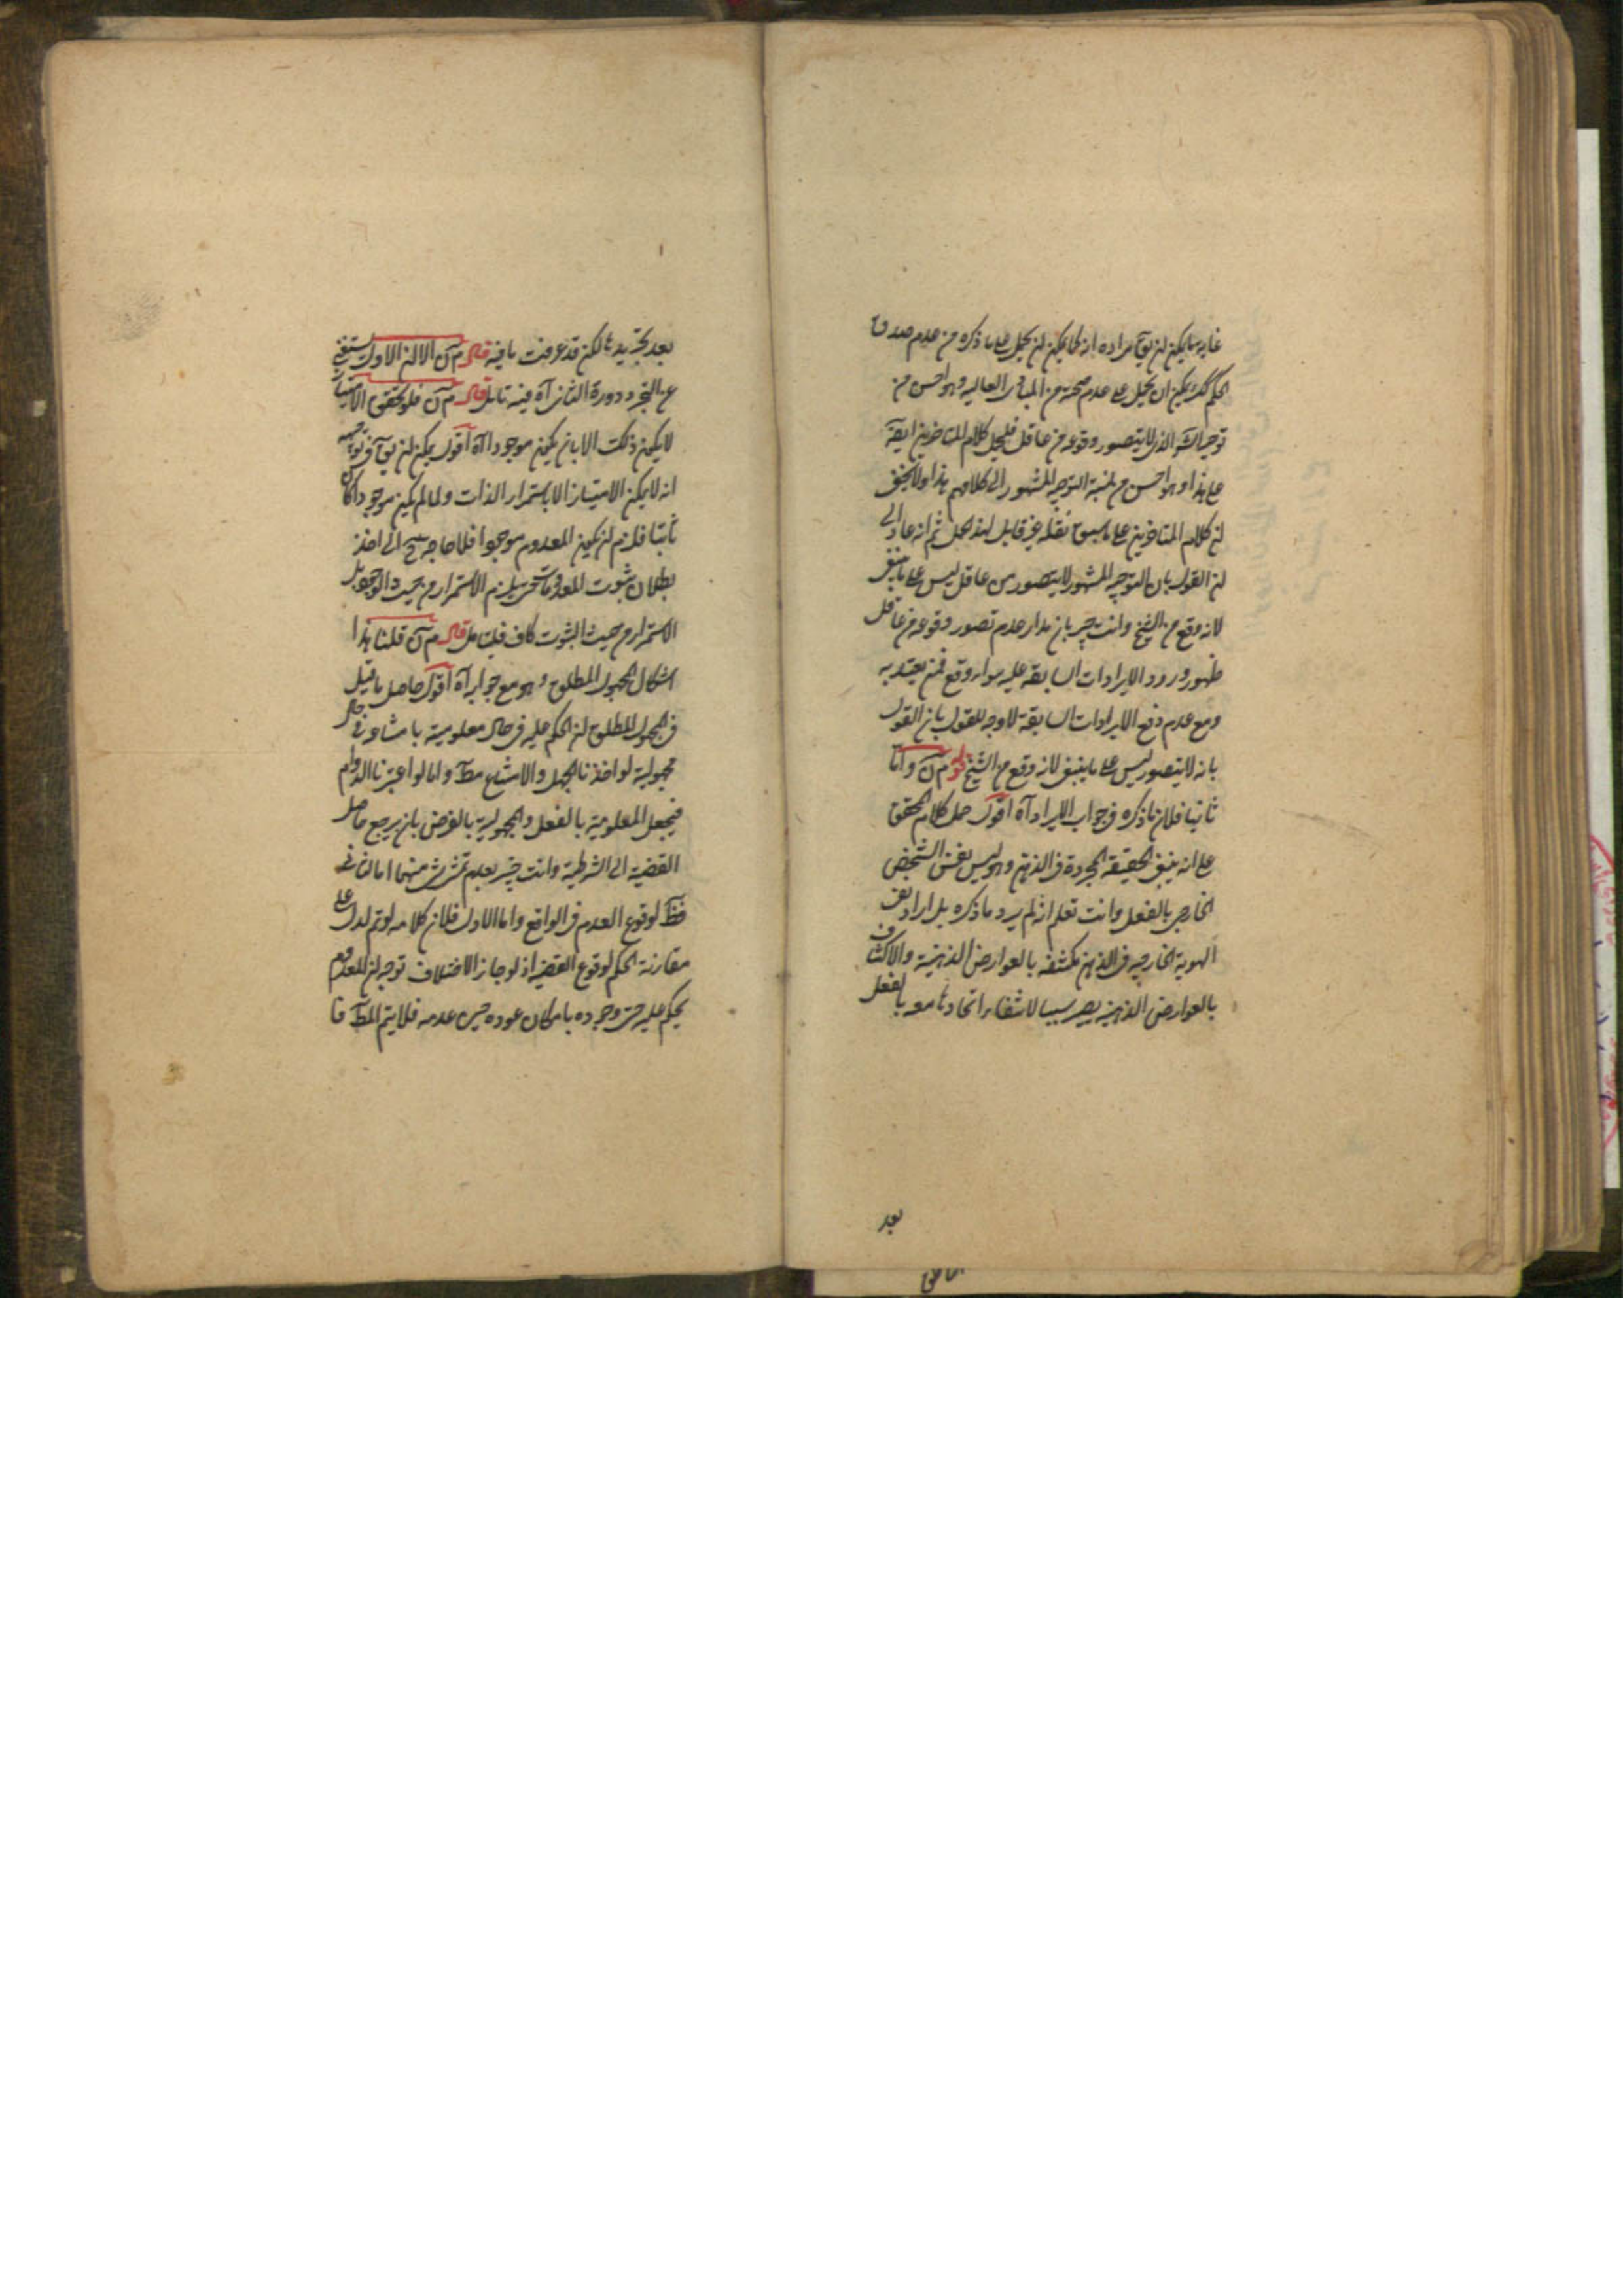 غاية ما يمكن ان يقآ مراده انه كما يمكن ان يحمل على ما ذكره من عدم صدق
الحكم كك يمكن ان يحمل على عدم صحته من المبادى العاليه وهو احسن من
توجيه الذى لا يتصور وقوعه من عاقل فليحمل كلام المتاخرين ايضآ
على هذا وهو احسن من نسبة التوجيه المشهور الى كلامهم هذا ولا يخفى
ان كلام المتاخرين على ما سبق نقله غير قابل لهذا الحمل ثم انه عاد الى
ان القول بان التوجيه المشهور لا يتصور من عاقل ليس على ما ينبغى
لانه وقع من الشيخ وانت خبير بان مدار عدم تصور وقوعه من عاقل
ظهور ورود الايرادات السابقه عليه سواء وقع ممن يعتد به
ومع عدم دفع الايرادات السابقة لا وجه للقول بان القول
بانه لا يتصور ليس على ما ينبغى لانه وقع من الشيخ قوله م آن واما
ثانيا فلان ما ذكره فى جواب الايراد آه اقول حمل كلام المحقق
على انه ينبغى الحقيقة المجردة فى الذهن وهو ليس نفس الشخص
الخارجى بالفعل وانت تعلم انه لم يرد ما ذكره بل اراد نفى
الهوية الخارجيه فى الذهن مكتنفه بالعوارض الذهنية والاكتناف
بالعوارض الذهنية يصير سببا لانتفاء اتحادها معه بالفعل
بعد
بعد تجريدها لكن قد عرفت ما فيه قال م آن الا ان الاول يستغنى
عن التجرد دورة الثانى آه فيه تامل قال م آن فلو تحقق الامتياز
لا يكون ذلك الا بان يكون موجودا آه اقول يمكن ان يقآ فى توجيهه
انه لا يمكن الامتياز الا باستمرار الذات ولما لم يكن موجودا كان
ثابتا فلزم ان يكون المعدوم موجودا فلا حاجة ح الى اخذ
بطلان ثبوت المعدومات حتى يلزم الاستمرار من حيث الوجود بل
الاستمرار من حيث الثبوت كاف فليتامل قال م آن قلنا هذا
اشكال المجهول المطلق وهو مع جوابه آه اقول حاصل ما قيل
فى المجهول المطلق ان الحكم عليه فى حال معلوميته بامتناعه فى حال
مجهوليته لو اخذنا الجهل والامتناع مطآ واما لو اعتبرنا الدوام
فيجعل المعلومية بالفعل والمجهولية بالفرض بان يرجع حاصل
القضية الى الشرطية وانت خبير بعدم تمشى شئ منهما اما الثانى
فظآ لوقوع العدم فى الواقع واما الاول فلان كلامه لو تم لدل على
مقارنة الحكم لوقوع القضية اذ لو جاز الاختلاف توجه ان المعدوم
يحكم عليه حين وجوده بامكان عوده حين عدمه فلا يتم المطآ فا